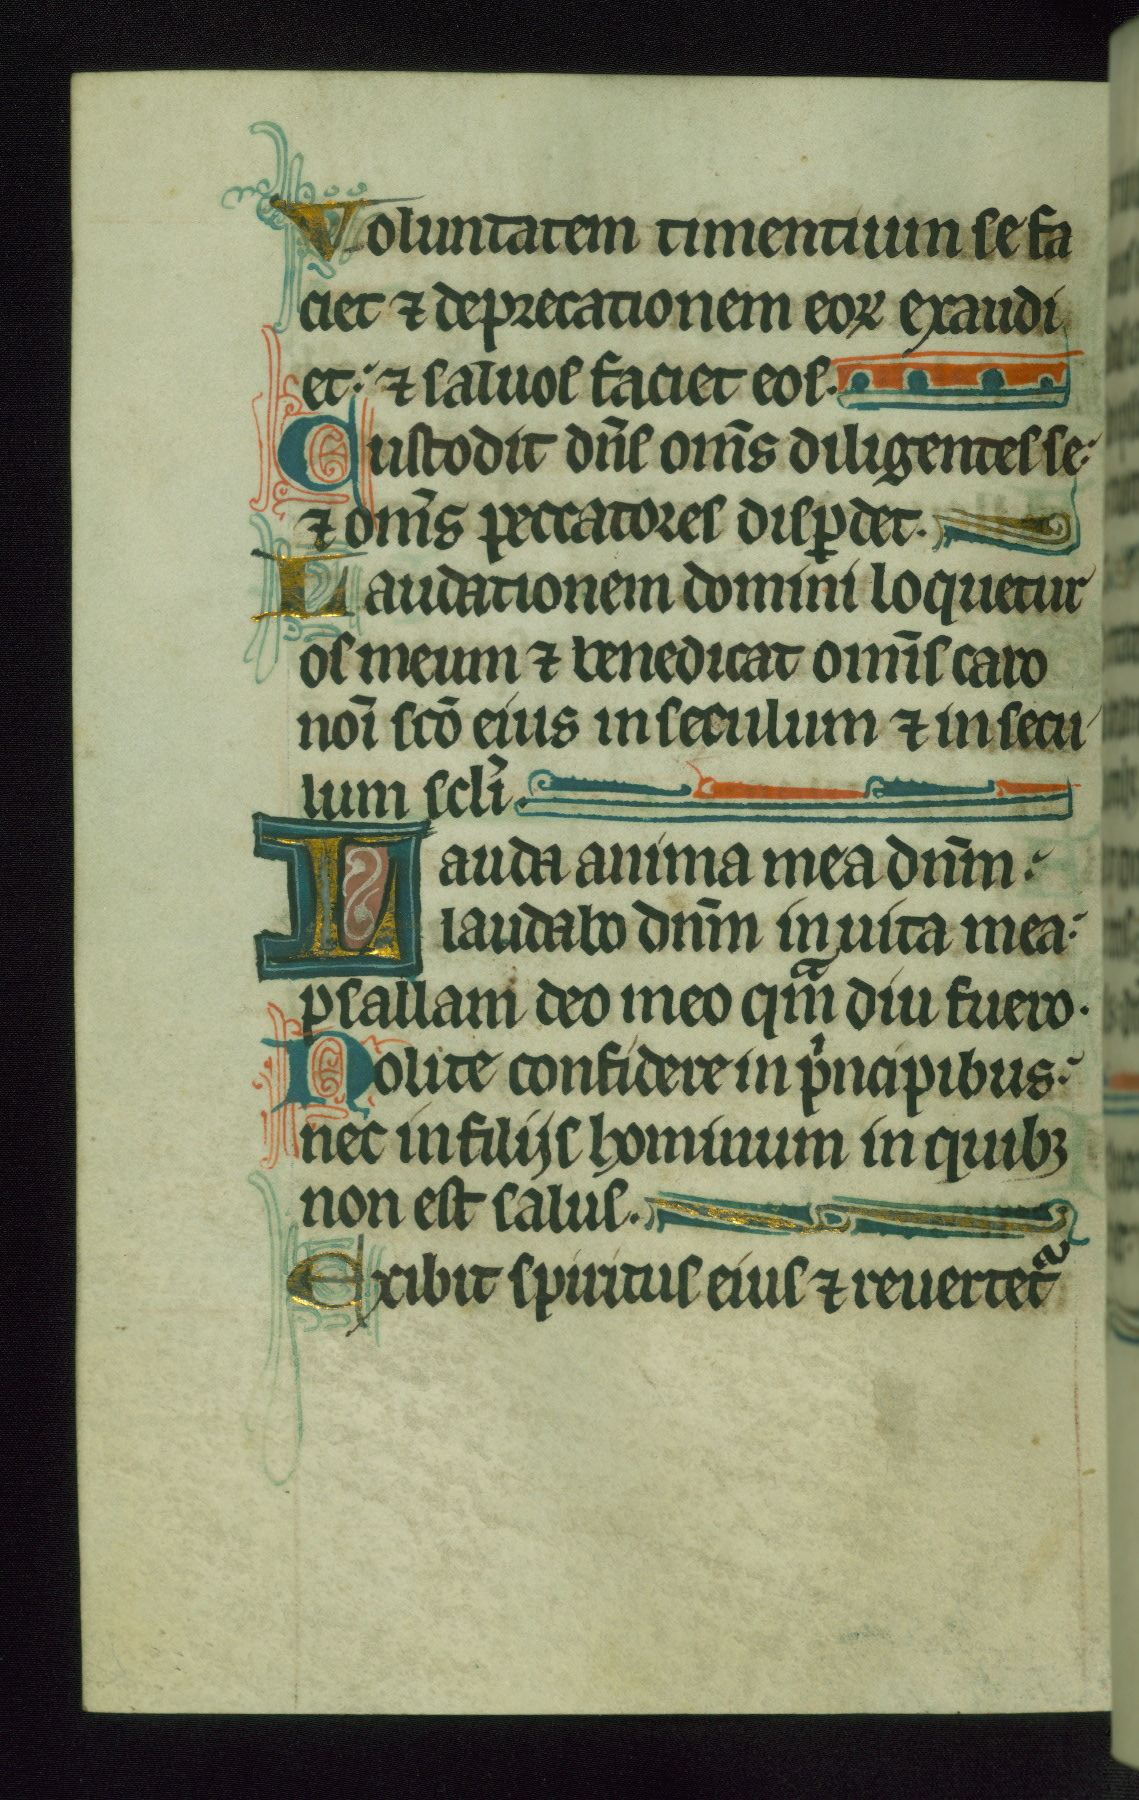 Voluntatem timentium se fa
ciet ⁊ deprecationem eoꝝ exaudi
et: ⁊ saluos faciet eos.
Custodit dn̄s om̄s diligentes se:
⁊ om̄s peccatores disꝑdet.
Laudationem domini loquetur
os meum ⁊ benedicat omīs caro
noī scō eius in seculum ⁊ in secu
lum scli̾
Lauda anima mea dn̄m:
laudabo dn̄m in uita mea:
psallam deo meo qᵃm̄ diu fuero.
Nolite confidere in pͥncipibus:
nec in filijs hominum in quibꝫ
non est salus.
Exibit spiritus eius ⁊ reuertetᵃ